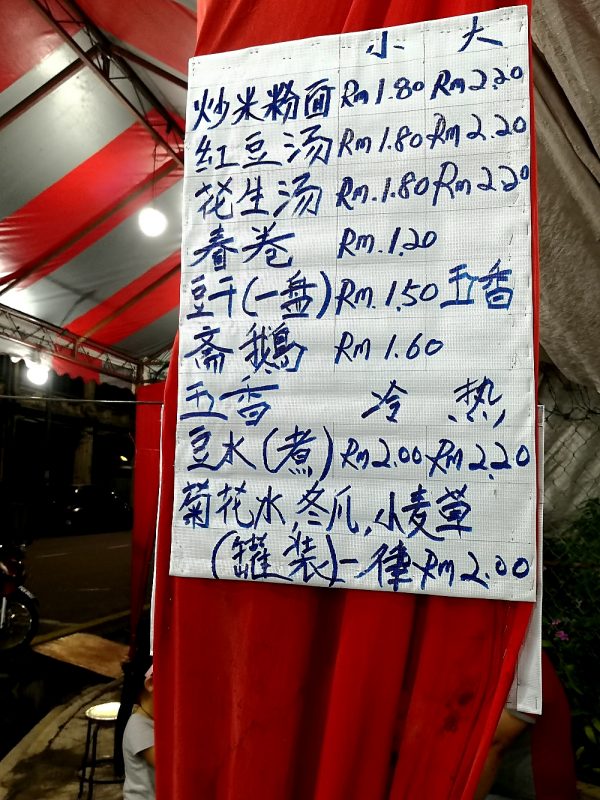 小 大
炒米粉面 Rm 1.80 Rm 2.20
红豆汤 Rm 1.80 Rm 2.20
花生汤 Rm.1.80 Rm 2.20
春卷 Rm.1.20
豆干(一盘) Rm.1.50 五香
斋鵝 Rm 1.60
五香 冷 热
豆水(煮) Rm 2.00 Rm 2.20
菊花水,冬瓜,小麦草
(罐装)一律 Rm 2.00